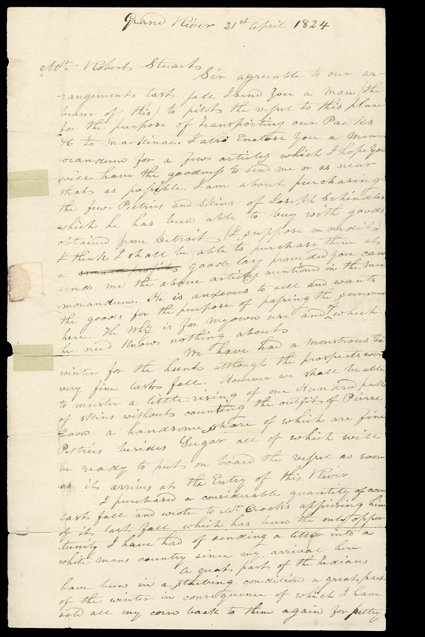 Grand River 21st April 1824
Mr. Robert Stuart
Sir agreable to our ar-
rangements last fall I send You a man (the
bearer of this) to pilot the vessel to this place
for the purpose of transporting our Packs
&c to Mackinac. I also Enclose You a mem-
orandum for a few articles which I hope You
will have the goodness to send me or as near
that as possible. I am about purchasing
the few Peltries and Skins of Joseph
which he has been able to buy with goods
obtained from Detroit (I suppose on credit)
I think I shall be able to purchase them at
a good lay provided You can
send me the above articles mentioned in the me-
morandum. He is anxious to sell and wants
the goods for the purpose of passing the summer
here. The is for my own use and which
he need know nothing about
We have had a monstrous bad
winter for the hunt although the prospects were
very fine last fall. However we shall be able
to muster a little rising of one Hundred packs
of skins without counting the outfit of Pierre
a handsome share of which are fine
Peltries besides Sugar all of which will
be ready to put on board the vessel as soon
as it arrives at the Entry of this River
I purchased a considerable quantity of corn
last fall and wrote to Mr. Crooks apprising him
of it last fall which has been the only oppor-
tunity I have had of sending a letter into a
white mans country since my arrival here
A great part of the Indians
have been in a starving condition a great part
of the winter in consequence of which I have
sold all my corn back to them again for peltry